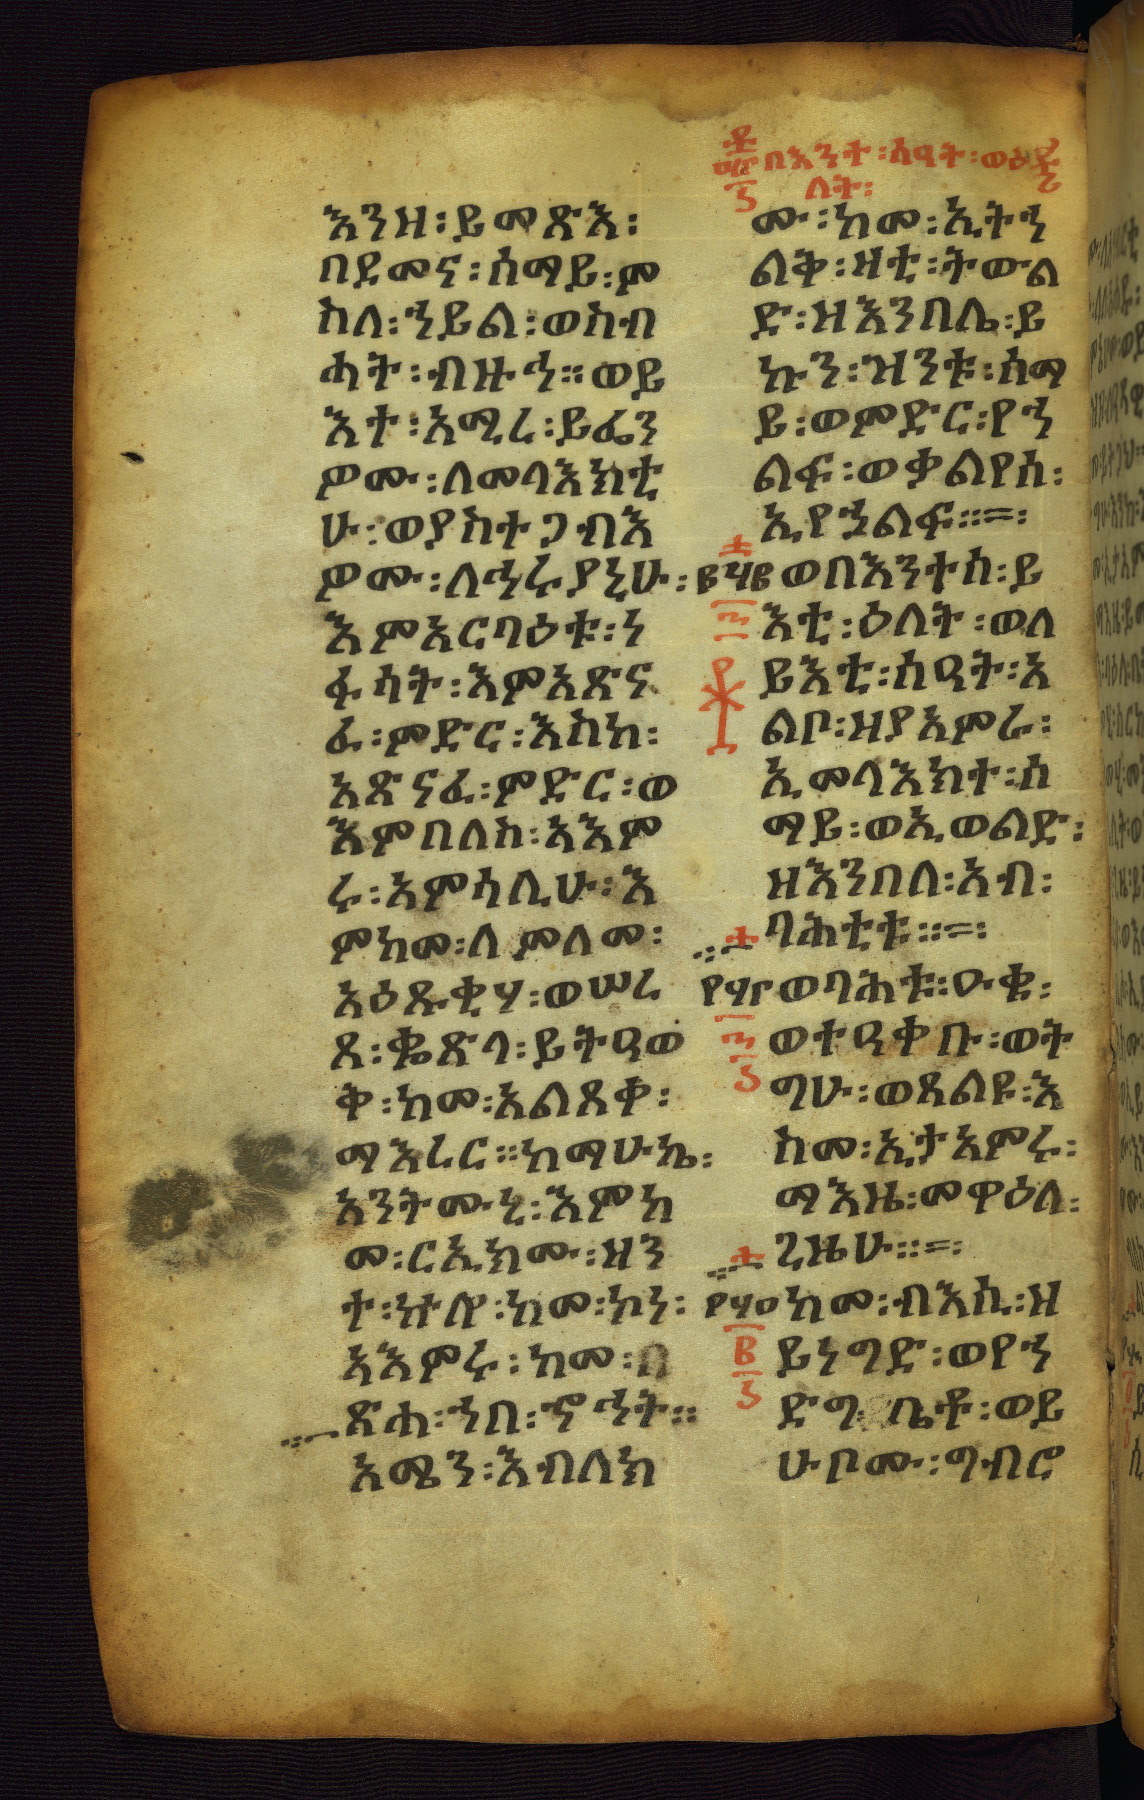 በእንተ ፡ ሰዓት ፡ ወዕ
ለት ፡
እንዘ ፡ ይመጽእ ፡
በደመና ፡ ሰማይ ፡ ም
ስለ ፡ ኀይል ፡ ወስብ
ሓት ፡ ብዙኅ ። ወይ
እተ ፡ አሚረ ፡ ይፌን
ዎሙ ፡ ለመላእክቲ
ሁ ፡ ወያስተጋብእ
ዎሙ ፡ ለኅሩያኒሁ ፡
እምአርባዕቱ ፡ ነ
ፋሳት ፡ እምአጽና
ፈ ፡ ምድር ፡ እስከ ፡
አጽናፈ ፡ ምድር ፡ ወ
እምበለስ ፡ አእም
ሩ ፡ አምሳሊሁ ፡ እ
ምከመ ፡ ለምለመ ፡
አዕጹቂሃ ፡ ወሠረ
ጸ ፡ ቈጽላ ፡ ይትዓወ
ቅ ፡ ከመ ፡ አልጸቀ ፡
ማእረር ። ከማሁኬ ፡
አንትሙኒ ፡ እምከ
መ ፡ ርኢክሙ ፡ ዘን
ተ ፡ ኵሎ ፡ ከመ ፡ ኮነ ፡
አእምሩ ፡ ከመ ፡ በ
ጽሐ ፡ ኀበ ፡ ኆኅት ።
አሜን ፡ እብለክ
ሙ ፡ ከመ ፡ ኢትኀ
ልቅ ፡ ዛቲ ፡ ትውል
ድ ፡ ዘእንበሌ ፡ ይ
ኩን ፡ ዝንቱ ፡ ሰማ
ይ ፡ ወምድር ፡ የኀ
ልፍ ፡ ወቃልየሰ ፡
ኢየኀልፍ ።=፡
ወበእንተሰ ፡ ይ
እቲ ፡ ዕለት ፡ ወለ
ይእቲ ፡ ሰዓት ፡ አ
ልቦ ፡ ዘያአምራ ፡
ኢመላእክተ ፡ ሰ
ማይ ፡ ወኢወልድ ፡
ዘእንበለ ፡ አብ ፡
ባሕቲቱ ።=፡
ወባሕቱ ፡ ዑቁ ፡
ወተዓቀቡ ፡ ወት
ግሁ ፡ ወጸልዩ ፡ እ
ስመ ፡ ኢታአምሩ ፡
ማእዜ ፡ መዋዕለ ፡
ጊዜሁ ።=፡
ከመ ፡ ብእሲ ፡ ዘ
ይነግድ ፡ ወየኀ
ድግ ቤቶ ፡ ወይ
ሁቦሙ ፡ ግብሮ